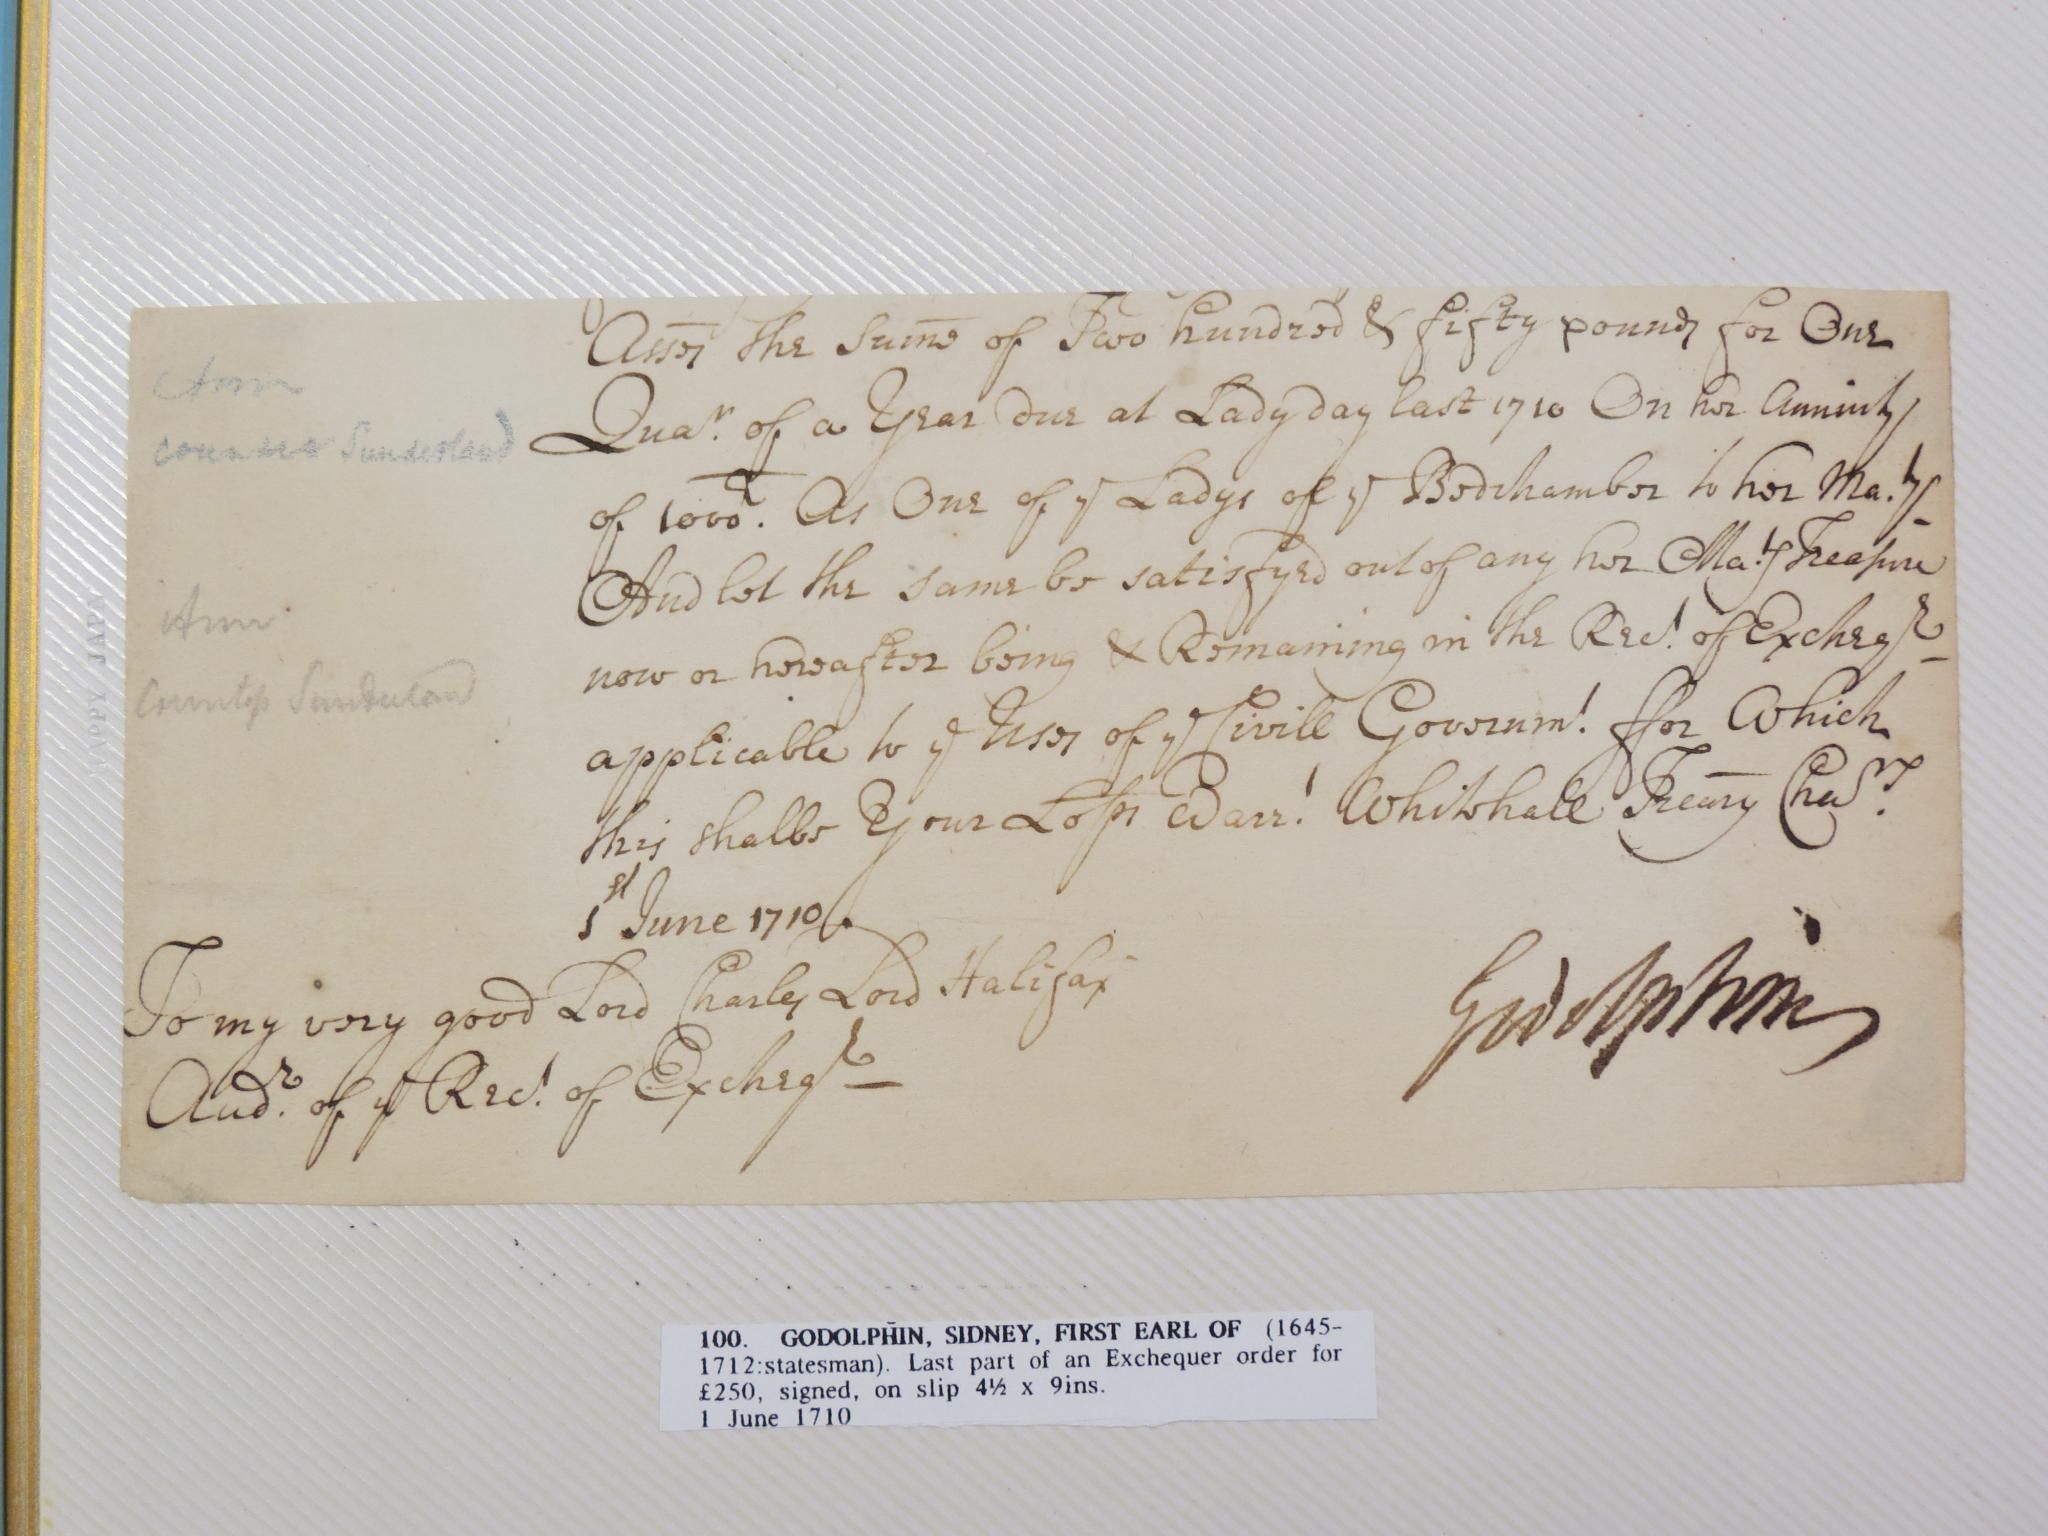 Asses the Sume of Two hundred & fifty pounds for One
Quar. of a Year due at Lady day last 1710 On her Annuity
of 1000l. As One of ye Ladys of ye Bedchamber to her Ma.ty
And let the same be satisfyed out of any her Ma.ty Treasure
now or hereafter being & Remaining in the Rec.t of Excheqr
applicable to ye Uses of ye Civill Governm.t ffor Which
this shalbe Your Lops Warr.t Whitehall Treary Chars.
1st June 1710.
To my very good Lord Charles Lord Halifax
Audr. of ye Rec.t of Excheqr
Godolphin
Ann
Sunderland
Ann
Countess Sunderland
HAPPY JAPA
100. GODOLPHIN, SIDNEY, FIRST EARL OF (1645-
1712:statesman). Last part of an Exchequer order for
£250, signed, on slip 4½ x 9ins.
1 June 1710